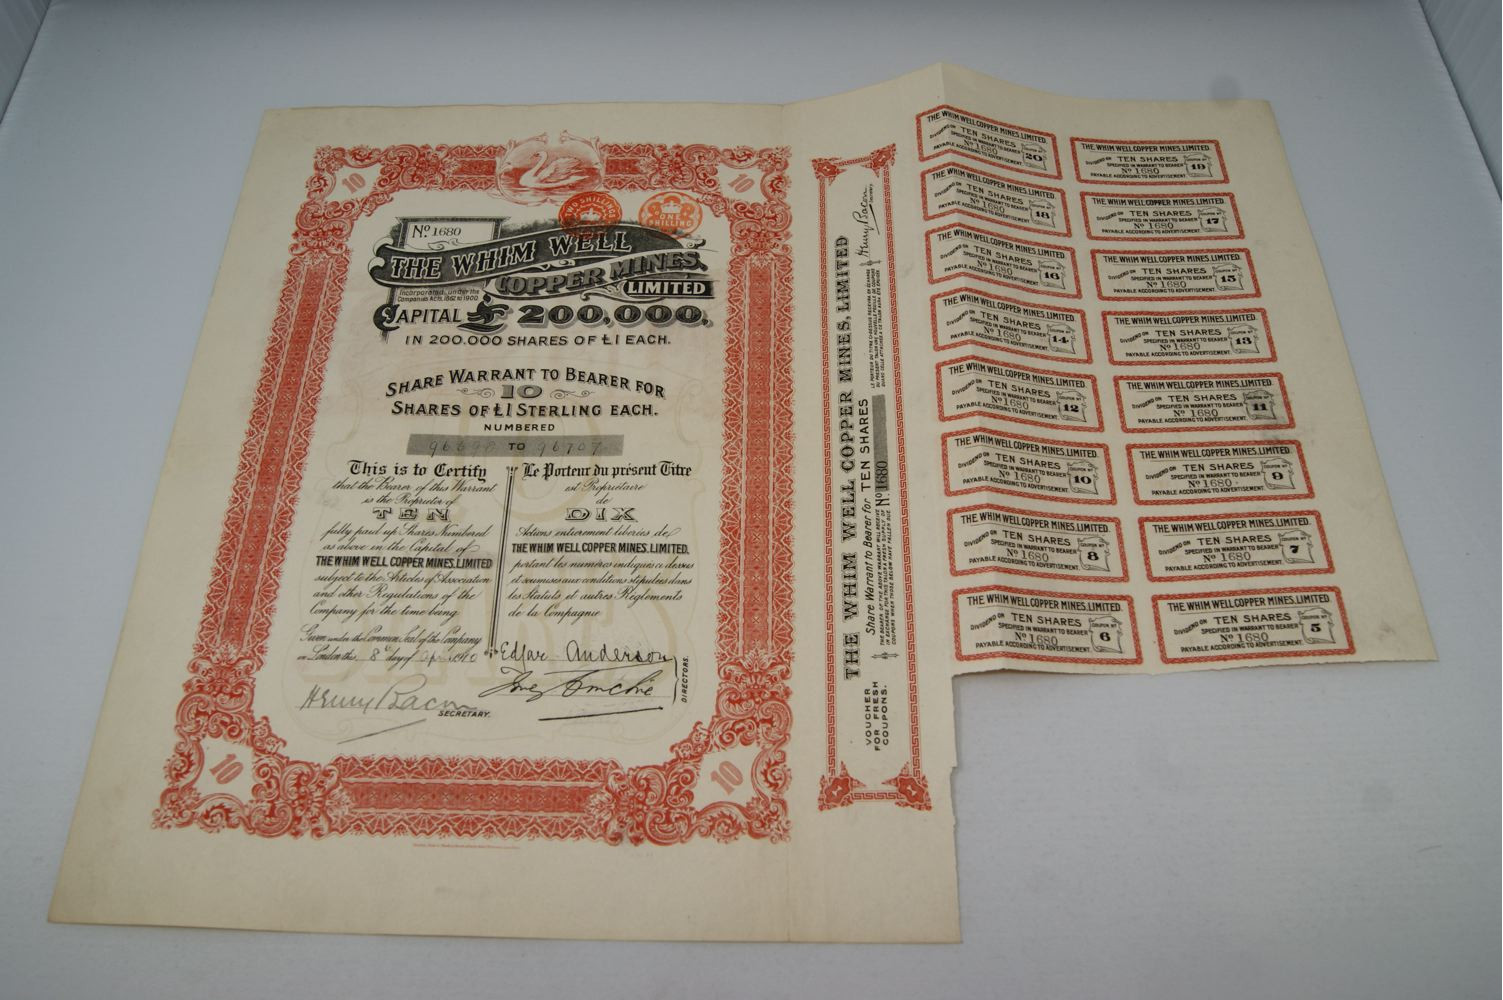 10
10
TWO SHILLINGS
ONE SHILLING
No 1680
THE WHIM WELL
COPPER MINES,
LIMITED
Incorporated under the
Companies Acts, 1862 to 1900
CAPITAL £200,000,
IN 200.000 SHARES OF £1 EACH.
SHARE WARRANT TO BEARER FOR
10
SHARES OF £1 STERLING EACH.
NUMBERED
96698 TO 96707
This is to Certify
that the Bearer of this Warrant
is the Proprietor of
TEN
fully paid up Shares Numbered
as above in the Capital of
THE WHIM WELL COPPER MINES, LIMITED
subject to the Articles of Association
and other Regulations of the
Company for the time being
Le Porteur du présent Titre
est Propriétaire
de
DIX
Actions entierement libérées de
THE WHIM WELL COPPER MINES, LIMITED.
portant les numéros indiqués ci dessus
et soumises aux conditions stipulées dans
les Statuts et autres Réglements
de la Compagnie
Given under the Common Seal of the Company
in London this 8th day of April 1910
Edgar Anderson
DIRECTORS.
Henry Bacon
SECRETARY.
10
10
THE WHIM WELL COPPER MINES, LIMITED
Share Warrant to Bearer for TEN SHARES
No 1680
Henry Bacon
Secretary.
VOUCHER
FOR FRESH
COUPONS.
THE WHIM WELL COPPER MINES, LIMITED.
DIVIDEND ON TEN SHARES COUPON No 20
SPECIFIED IN WARRANT TO BEARER
No 1680
PAYABLE ACCORDING TO ADVERTISEMENT.
THE WHIM WELL COPPER MINES, LIMITED.
DIVIDEND ON TEN SHARES COUPON No 19
SPECIFIED IN WARRANT TO BEARER
No 1680
PAYABLE ACCORDING TO ADVERTISEMENT.
THE WHIM WELL COPPER MINES, LIMITED.
DIVIDEND ON TEN SHARES COUPON No 18
SPECIFIED IN WARRANT TO BEARER
No 1680
PAYABLE ACCORDING TO ADVERTISEMENT.
THE WHIM WELL COPPER MINES, LIMITED.
DIVIDEND ON TEN SHARES COUPON No 17
SPECIFIED IN WARRANT TO BEARER
No 1680
PAYABLE ACCORDING TO ADVERTISEMENT.
THE WHIM WELL COPPER MINES, LIMITED.
DIVIDEND ON TEN SHARES COUPON No 16
SPECIFIED IN WARRANT TO BEARER
No 1680
PAYABLE ACCORDING TO ADVERTISEMENT.
THE WHIM WELL COPPER MINES, LIMITED.
DIVIDEND ON TEN SHARES COUPON No 15
SPECIFIED IN WARRANT TO BEARER
No 1680
PAYABLE ACCORDING TO ADVERTISEMENT.
THE WHIM WELL COPPER MINES, LIMITED.
DIVIDEND ON TEN SHARES COUPON No 14
SPECIFIED IN WARRANT TO BEARER
No 1680
PAYABLE ACCORDING TO ADVERTISEMENT.
THE WHIM WELL COPPER MINES, LIMITED.
DIVIDEND ON TEN SHARES COUPON No 13
SPECIFIED IN WARRANT TO BEARER
No 1680
PAYABLE ACCORDING TO ADVERTISEMENT.
THE WHIM WELL COPPER MINES, LIMITED.
DIVIDEND ON TEN SHARES COUPON No 12
SPECIFIED IN WARRANT TO BEARER
No 1680
PAYABLE ACCORDING TO ADVERTISEMENT.
THE WHIM WELL COPPER MINES, LIMITED.
DIVIDEND ON TEN SHARES COUPON No 11
SPECIFIED IN WARRANT TO BEARER
No 1680
PAYABLE ACCORDING TO ADVERTISEMENT.
THE WHIM WELL COPPER MINES, LIMITED.
DIVIDEND ON TEN SHARES COUPON No 10
SPECIFIED IN WARRANT TO BEARER
No 1680
PAYABLE ACCORDING TO ADVERTISEMENT.
THE WHIM WELL COPPER MINES, LIMITED.
DIVIDEND ON TEN SHARES COUPON No 9
SPECIFIED IN WARRANT TO BEARER
No 1680
PAYABLE ACCORDING TO ADVERTISEMENT.
THE WHIM WELL COPPER MINES, LIMITED.
DIVIDEND ON TEN SHARES COUPON No 8
SPECIFIED IN WARRANT TO BEARER
No 1680
PAYABLE ACCORDING TO ADVERTISEMENT.
THE WHIM WELL COPPER MINES, LIMITED.
DIVIDEND ON TEN SHARES COUPON No 7
SPECIFIED IN WARRANT TO BEARER
No 1680
PAYABLE ACCORDING TO ADVERTISEMENT.
THE WHIM WELL COPPER MINES, LIMITED.
DIVIDEND ON TEN SHARES COUPON No 6
SPECIFIED IN WARRANT TO BEARER
No 1680
PAYABLE ACCORDING TO ADVERTISEMENT.
THE WHIM WELL COPPER MINES, LIMITED.
DIVIDEND ON TEN SHARES COUPON No 5
SPECIFIED IN WARRANT TO BEARER
No 1680
PAYABLE ACCORDING TO ADVERTISEMENT.